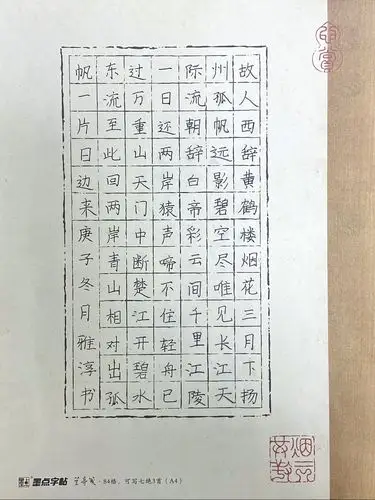 故人西辞黄鹤楼烟花三月下扬
州孤帆远影碧空尽唯见长江天
际流朝辞白帝彩云间千里江陵
一日还两岸猿声啼不住轻舟已
过万重山天门中断楚江开碧水
东流至此回两岸青山相对出孤
帆一片日边来庚子冬月雅淳书
墨点字帖 ·84格,可写七绝3首(A4)